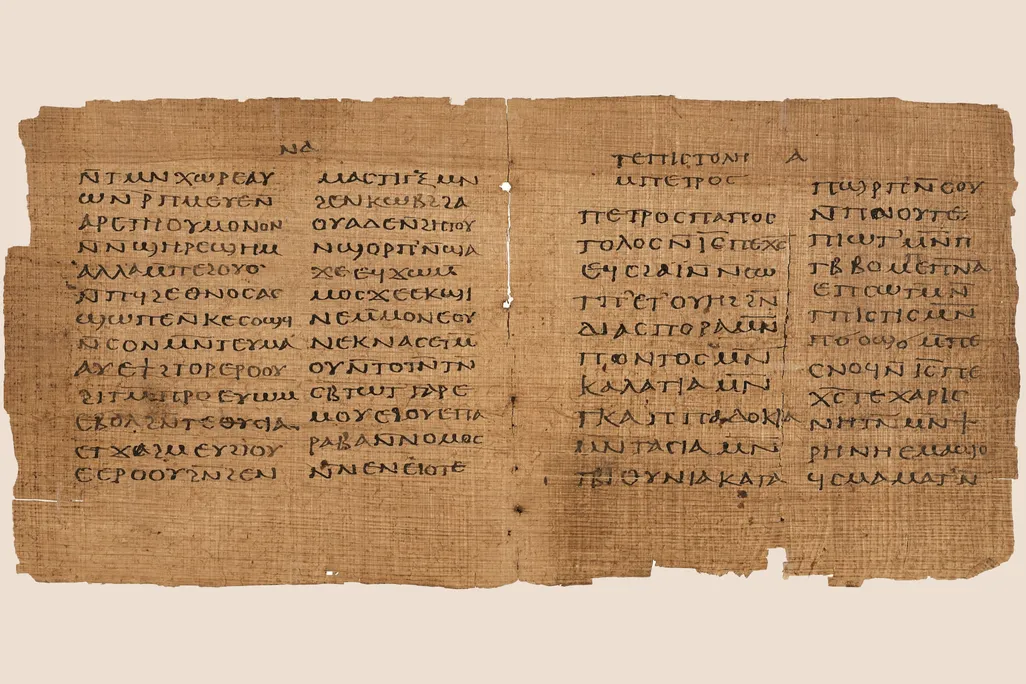 ⲛⲁ
ⲛ̄ⲧⲙⲛϫⲱⲣⲉⲁⲩ
ⲱⲛⲣ̄ⲡⲙⲉⲩⲉⲛ
ⲁⲣⲉⲧⲏⲟⲩⲙⲟⲛⲟⲛ
ⲛ̄ⲛϣⲏⲣⲉϣⲏⲙ
ⲁⲗⲗⲁⲙ̄ⲡⲉϩⲟⲩⲟ
ⲛ̄ⲡϥϩⲉⲑⲛⲟⲥⲁⲥ
ϣⲱⲡⲉⲛ̄ⲕⲉⲥⲟϣϥ
ⲛ̄ⲥⲟⲛⲙⲛⲧⲉⲩⲙⲁ
ⲁⲩⲉϯϩⲧⲟⲣⲉⲣⲟⲟⲩ
ϩⲓⲧⲙ̄ⲡⲣⲟⲉⲩⲱⲙ
ⲉⲃⲟⲗϩⲛ̄ⲧⲉⲑⲩⲥⲓⲁ
ⲉⲧϫⲁϩⲙⲉⲩϩⲓⲟⲩ
ⲉⲉⲣⲟⲟⲩϩⲛϩⲉⲛ
ⲙⲁⲥⲧⲓⲅⲝⲙⲛ
ϩⲉⲛⲕⲱⲃϩϩⲁ
ⲟⲩⲁⲇⲉⲛ̄ϩⲏⲧⲟⲩ
ⲛ̄ϣⲟⲣⲡⲛ̄ϣⲁ
ϫⲉⲉϥϫⲱⲙ
ⲙⲟⲥϫⲉⲉⲕϣⲓ
ⲛⲉⲙ̄ⲙⲟⲛⲉⲟⲩ
ⲛⲉⲕⲛⲁⲥⲉⲧⲙ
ⲟⲩⲛ̄ⲧⲟⲧⲛ̄ⲧⲛ
ⲥⲃⲧⲱⲧⲅⲁⲣⲉ
ⲙⲟⲩⲉϩⲟⲩⲉⲡⲁ
ⲣⲁⲃⲁⲛ̄ⲛⲟⲙⲟⲥ
ⲛ̄ⲛⲉⲛⲉⲓⲟⲧⲉ
ⲧⲉⲡⲓⲥⲧⲟⲗⲏ ⲁ
ⲙⲡⲉⲧⲣⲟⲥ
ⲡⲉⲧⲣⲟⲥⲡⲁⲡⲟⲥ
ⲧⲟⲗⲟⲥⲛ̄ⲓ̄ⲥ̄ⲡⲉⲭⲥ
ⲉϥⲥϩⲁⲓ̈ⲛ̄ⲛⲥⲱ
ⲧⲡ̄ⲉⲧⲟⲩⲏϩϩⲛ̄
ⲇⲓⲁⲥⲡⲟⲣⲁⲙⲛ̄
ⲡⲟⲛⲧⲟⲥⲙⲛ̄
ⲕⲁⲗⲁⲧⲓⲁⲙⲛ̄
ⲧⲕⲁⲡⲡⲁⲇⲟⲕⲓⲁ
ⲙⲛⲧⲁⲥⲓⲁⲙⲛ
ⲧⲃⲓⲑⲩⲛⲓⲁⲕⲁⲧⲁ
ⲡϣⲣ̄ⲡⲛ̄ⲥⲟⲩ
ⲛ̄ⲡⲛⲟⲩⲧⲉ
ⲡⲓⲱⲧʼⲙⲛ̄ⲡ
ⲧⲃⲃⲟⲙⲉⲡⲛ̅ⲁ̅
ⲉⲡⲥⲱⲧⲙⲛ̄
ⲧⲡⲓⲥⲧⲓⲥⲙⲛ
ⲙ̄ⲡⲉ
ⲥⲛⲟϥⲛ̄ⲓ̄ⲥ̄ⲡⲉ
ⲭ̅ⲥ̅ⲧⲉⲭⲁⲣⲓⲥ
ⲛⲏⲧⲛ̄ⲙⲛϯ
ⲣⲏⲛⲏⲉⲙⲁϣⲟ
ϥⲥⲙⲁⲙⲁⲧʼⲛ